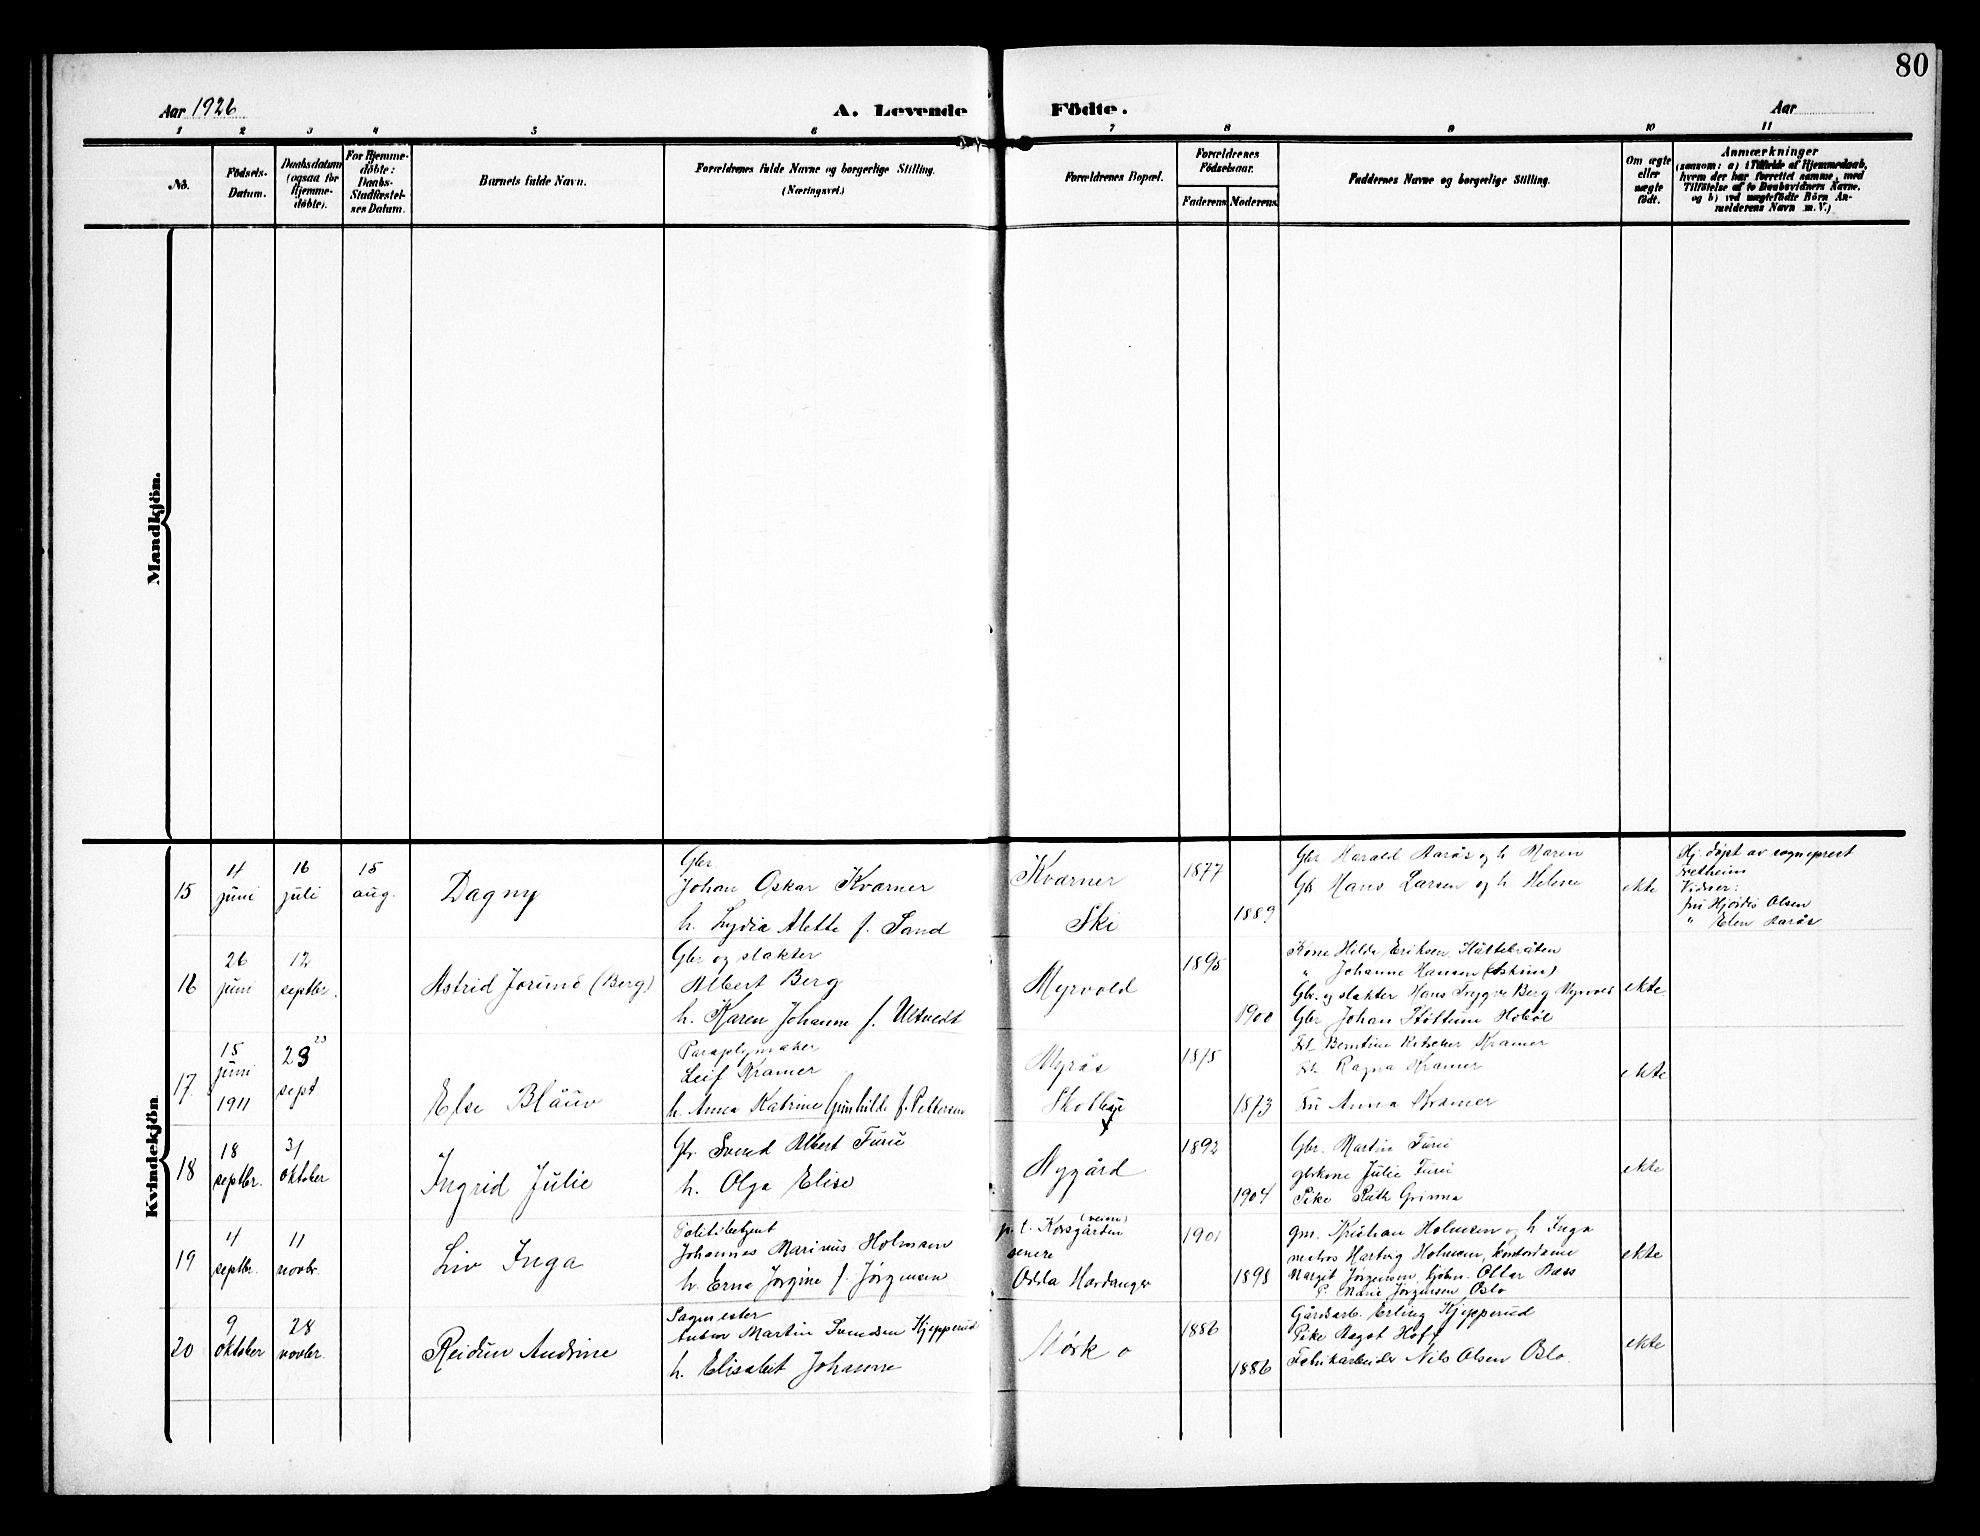 80
Aar 1926
A. Levende Födte.
Aar
1 2 3 4 5 6 7 8 9 10 11
No.
Födsels-
Datum.
Daabsdatum
(ogsaa for
Hjemme-
döbte).
For Hjemme-
döbte:
Daabs-
Stadfæstel-
ses Datum.
Barnets fulde Navn.
Forældrenes fulde Navne og borgerlige Stilling.
(Næringsvei.)
Forældrenes Bopæl.
Forældrenes
Födselsaar.
Faderens Moderens.
Faddernes Navne og borgerlige Stilling.
Om ægte
eller
uægte
födt.
Anmærkninger
(saasom: a) i Tilfælde af Hjemmedaab,
hvem der har forrettet samme, med
Tilföielse af to Daabsvidners Navne,
og b) ved uægtefödte Börn An-
melderens Navn m. V.)
Mandkjön.
Kvindekjön
15
4
juni
16
juli
15
aug.
Dagny
Gbr
Johan Oskar Kvarner
h. Lydia Alette f. Sand
Kvarner
Ski
1877
1889
Gbr Harald Aarås og h Maren
Gbr Hans Larsen og h Helene
ekte
Hj. døpt av sogneprest
Vidner:
fru Hjørdis Olsen
" Elen Aarås
16
26
juni
12
septbr.
Astrid Jorund (Berg)
Gbr og slakter
Albert Berg
h. Karen Johanne f. Ultvedt
Myrvold
1895
1900
Kone Hilda Eriksen
" Johanne Hansen (Askim)
Gbr. og slakter Hans Trygve Berg Myrvold
Gbr Johan Hobøl
ekte
17
15
juni
1911
23 23
sept
Else Blåuv
Paraplymaker
Leif Kramer
h. Anna Katrine Gunhilde f. Pettersen
Myrås
1875
1873
Frk Berntine Kramer
Frk. Ragna Kramer
Fru Anna Kramer
ekte
18
18
septbr.
31
oktober
Ingrid Julie
Gbr. Svend Albert Furu
h. Olga Elise
Nygård
1892
1904
Gbr. Martin Furu
gbrkone Julie Furu
Pike Ruth Grinna
ekte
19
4
septbr.
11
novbr.
Liv Inga
Politibetjent
Johannes Marinus Holmsen
h. Erna Jørgine f. Jørgensen
(veien)
p. t. Korsgården
senere
Odda Hardanger
1901
1898
gm. Kristian Holmsen og h Inga
matros Hartvig Holmsen, kontordame
Margit Jørgensen, Ottar Næss
P. Marie Jørgensen Oslo
ekte
20
9
oktober
28
novbr.
Reidun Andrine
Sagmester
Anton Martin Svendsen Kjepperud
h. Elisabet Johanne
1886
1886
Gårdsarb. Erling Kjepperud
Pike Dagot Hoff
Fabrikarbeider Nils Olsen Oslo.
ekte